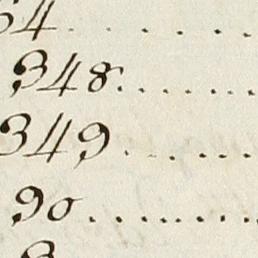 348........
349.......
90.........